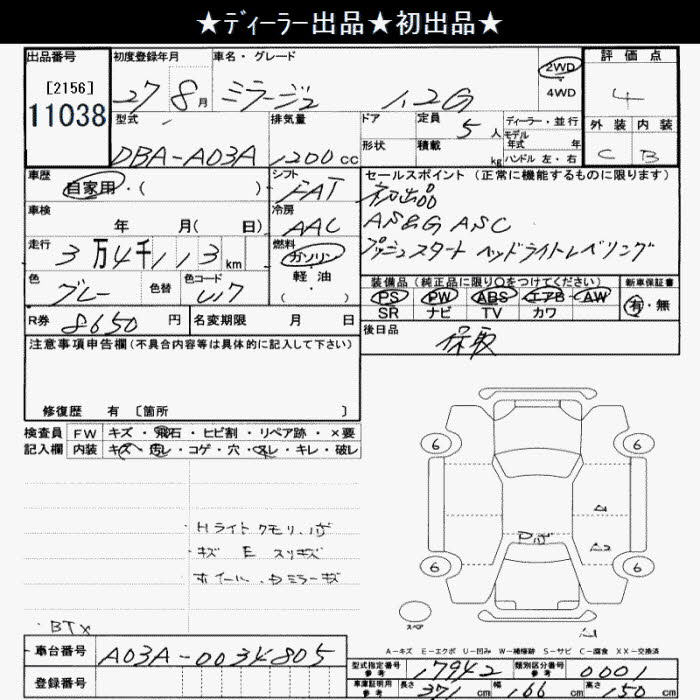 ★ディーラー出品★初出品★
出品番号 初度登録年月 車名・グレード 評価点
[2156]
11038
27 8月 ミラージュ 1.2G
2WD
4WD
4
型式 排気量 ドア 定員 5人 ディーラー・並行
モデル年式 年
外装 内装
DBA-A03A 1200cc 形状 積載 kg ハンドル 左・右
C B
車歴 シフト セールスポイント (正常に機能するものに限ります)
自家用・( ) FAT 初出品
車検 冷房 AS&G ASC
年 月( 日) AAC
走行 燃料 プッシュスタート ヘッドライトレベリング
3万4千113km ガソリン
軽油
( )
色 色替 色コード 装備品 (純正品に限り○をつけてください) 新車保証書
グレー U17 PS PW ABS エアB AW 有・無
SR ナビ TV カワ
R券 8650円 名変期限 月 日 後日品
保取
注意事項申告欄(不具合内容等は具体的に記入して下さい)
修復歴 有 〔箇所 〕
検査員 FW キズ・飛石・ヒビ割・リペア跡・×要
記入欄 内装 キズ・汚レ・コゲ・穴・スレ・キレ・破レ
6 6
6 6
・Hライトクモリ、
・キズ E スリキズ
スペア
・BTX
A-キズ E-エクボ U-凹み W-補修跡 S-サビ C-腐食 XX-交換済
車台番号 A03A-0034805
型式指定番号 参考 17942 類別区分番号 参考 0001
登録番号
車庫証明用 参考 長さ 371cm 幅 166cm 高さ 150cm